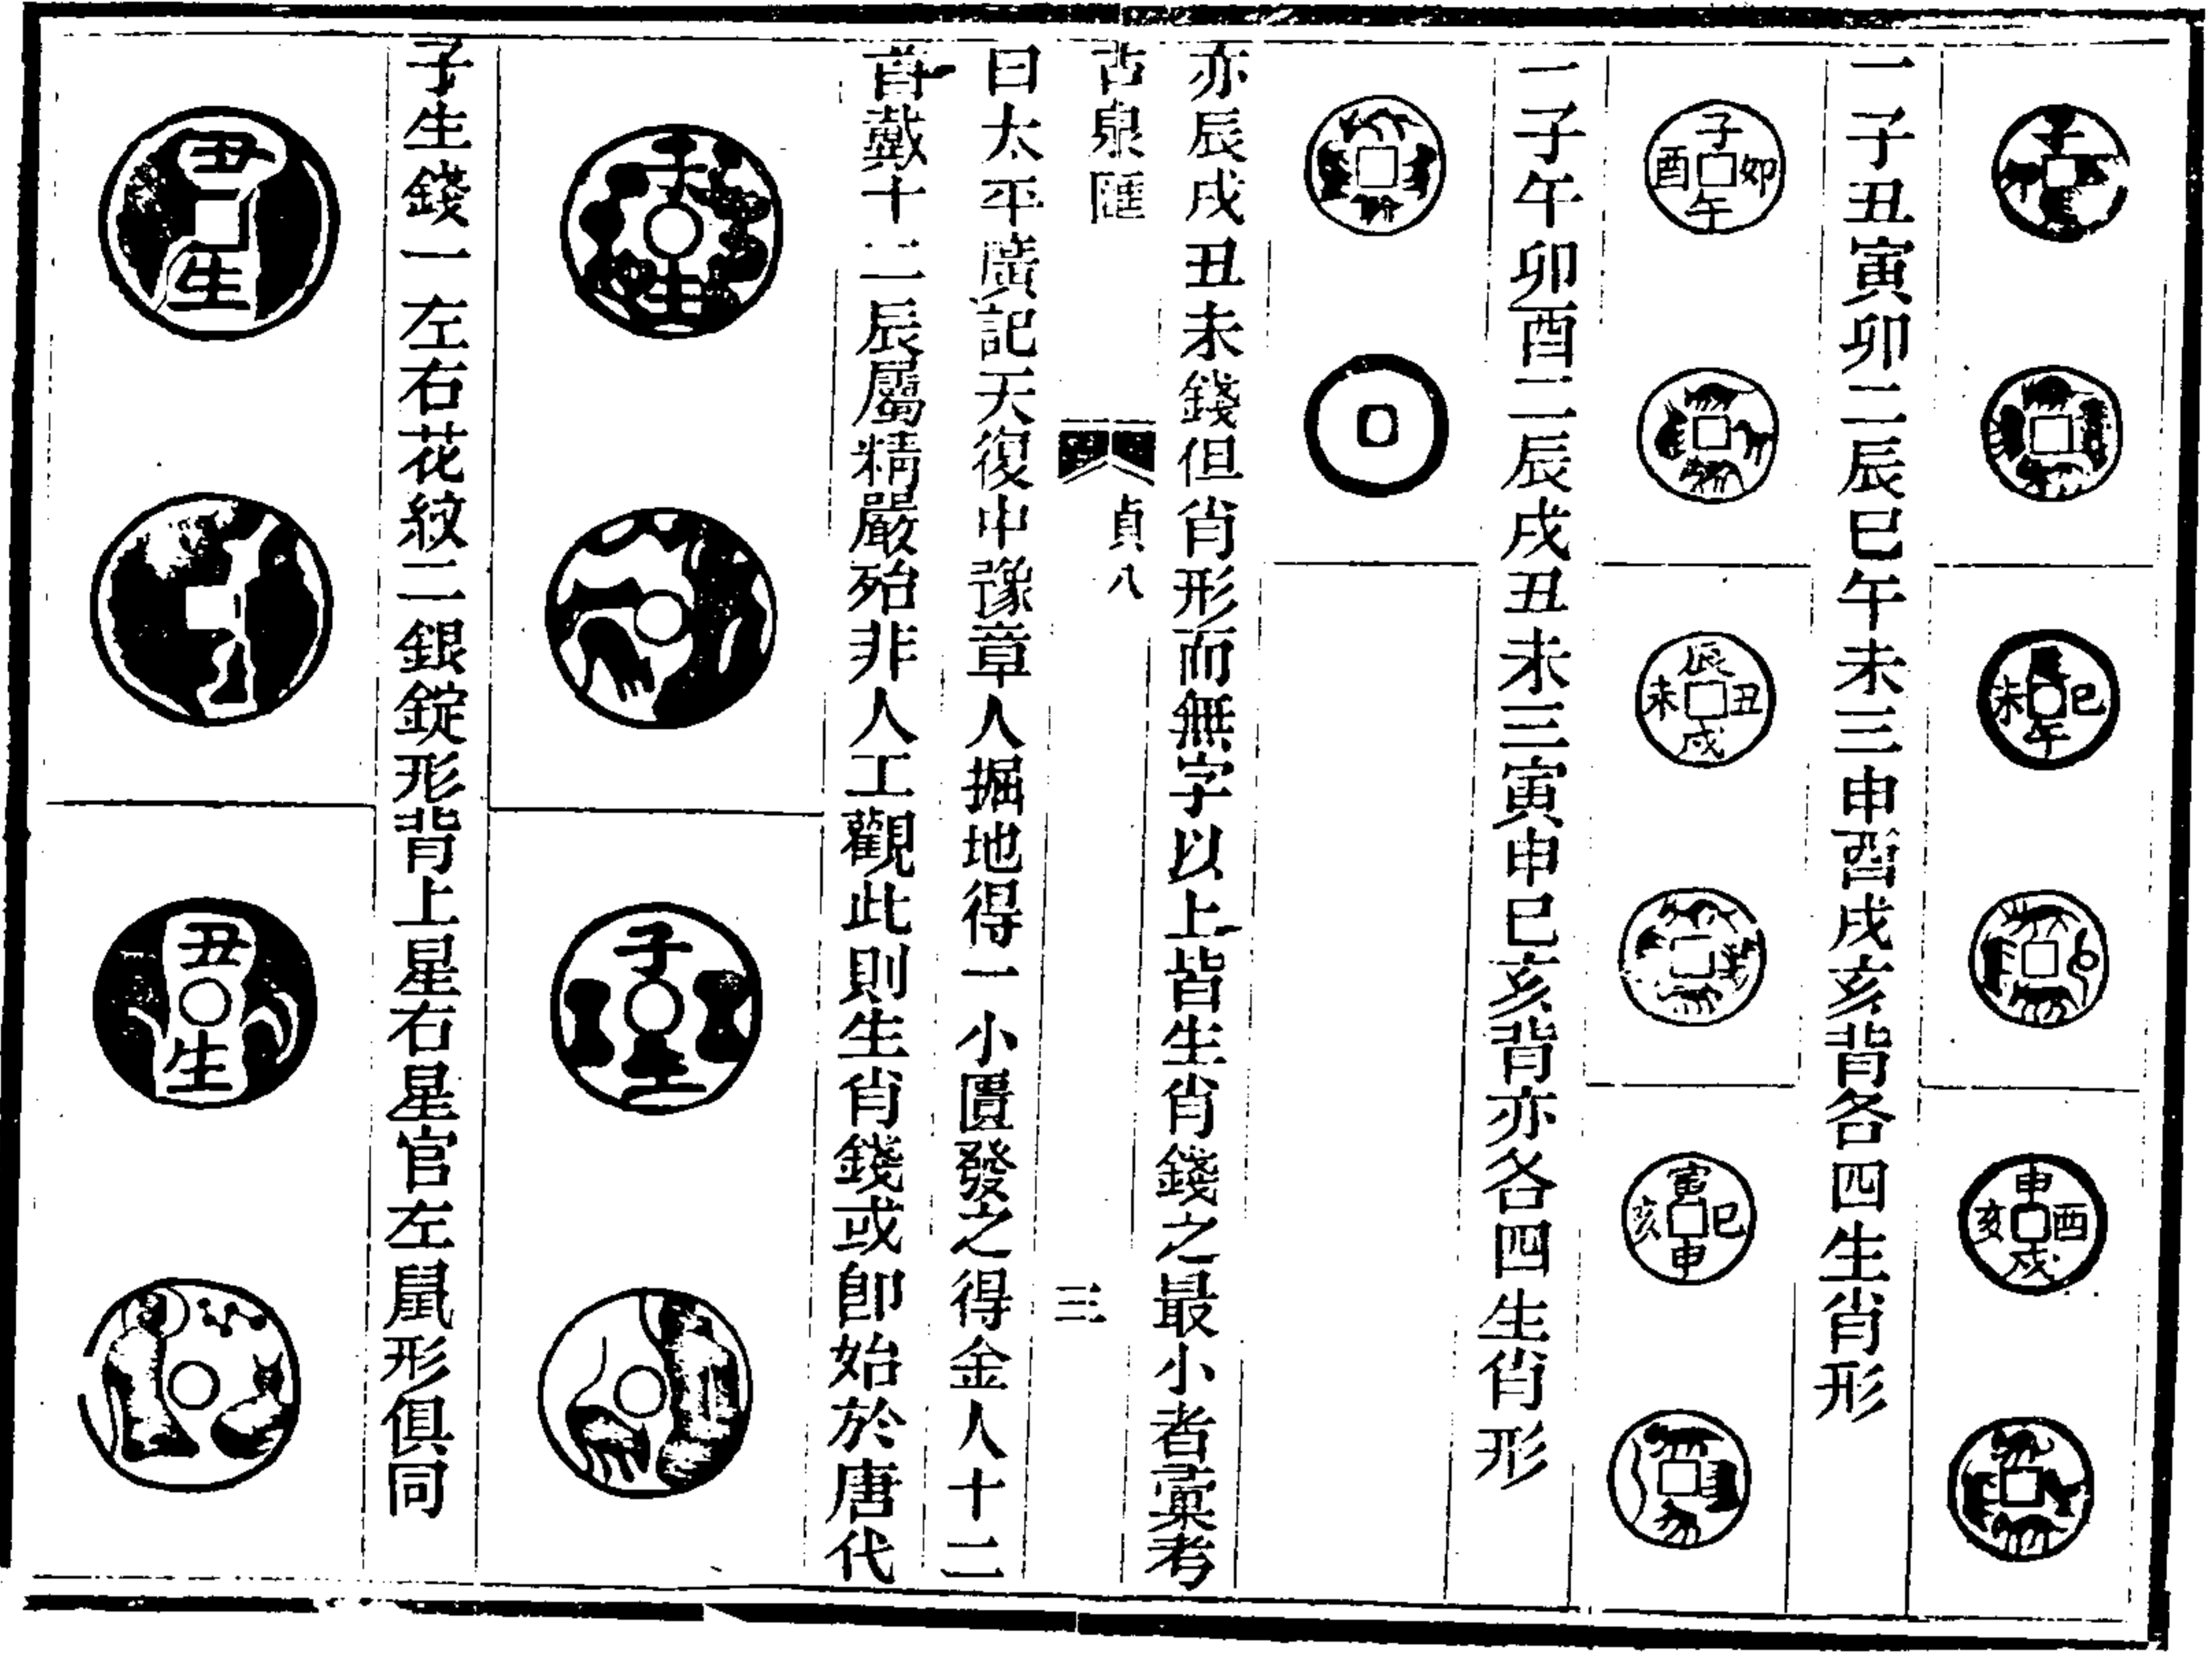 子
辰巳午未
申酉戌亥
一子丑寅卯二辰巳午未三申酉戌亥背各四生肖形
子卯午酉
辰丑戌未
寅巳申亥
一子午卯酉二辰戌丑未三寅申巳亥背亦各四生肖形
亦辰戌丑未錢但肖形而無字以上皆生肖錢之最小者彙考
古泉匯 貞八 三
曰太平廣記天復中豫章人掘地得一小匱發之得金人十二
首戴十二辰屬精嚴殆非人工觀此則生肖錢或卽始於唐代
子生
子生
子生錢一左右花紋二銀錠形背上星右星官左鼠形俱同
丑生
丑生